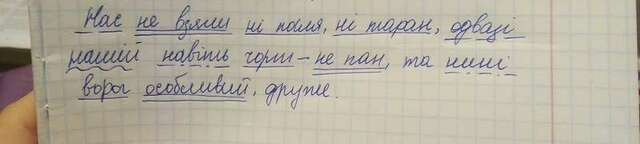 Нас не взяли ні поля, ні таран, одвазі
нашій навіть чорт – не пан, та нині
ворог особливий, друже.